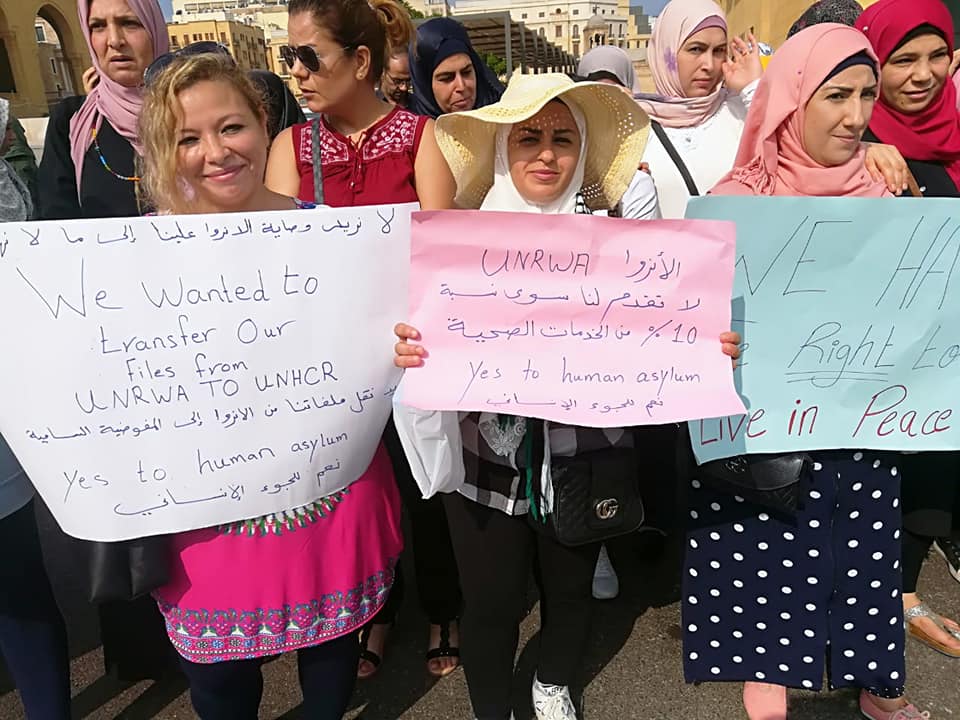 لا نريد وصاية الانروا علينا إلى ما لا
We Wanted to
transfer Our
Files from
UNRWA TO UNHCR
نقل ملفاتنا من الأنروا إلى المفوضية السامية
Yes to human asylum
نعم للجوء الإنساني
الأنروا UNRWA
لا تقدم لنا سوى نسبة
10 % من الخدمات الصحية
Yes to human asylum
نعم للجوء الإنساني
WE HA
Right to
Live in Peace